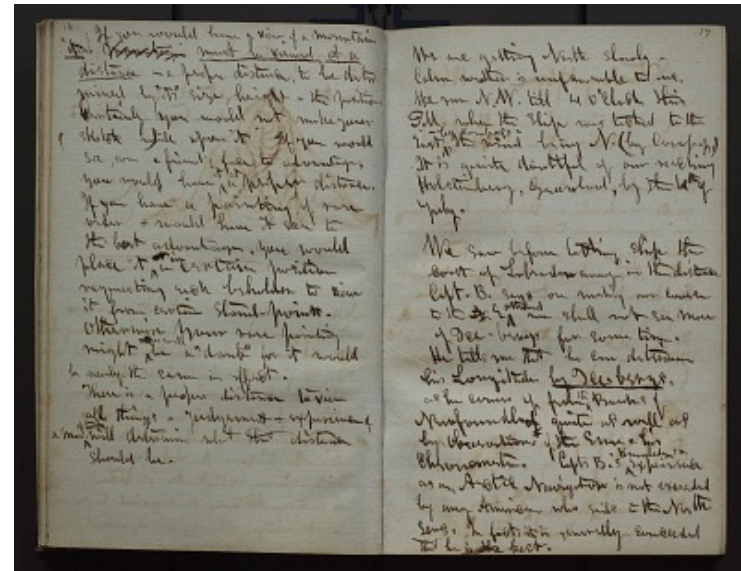 If you would have a view of a Mountain
it must be viewed at a
distance - a proper distance, to be deter
mined by its size, height & the position
Certainly you would not make your
sketch while upon it. If you would
see, own a friend's face to advantage,
you would have it at proper distance.
If you have a painting of rare
order & would have it seen to
the best advantage, you would
place it in certain position
requesting each beholder to view
it from certain Stand-points.
Otherwise your rare painting
might be a "daub" for it would
be nearly the same in effect.
There is a proper distance to view
all things - Judgement & experience of
a man will determine what that distance
should be.
17
We are getting North slowly -
Calm weather is unfavorable to us.
We run N.W. till 4 O'Clock this
P.M. when the Ship was tacked to the
East, the wind being N. (by Compass)
It is quite doubtful of our reaching
Holsteinborg, Greenland, by the 4th of
July.
We saw before tacking ship the
coast of Labrador away in the distance
Capt. B. says on making our course
to the Eastward we shall not see more
of Ice-bergs for some time.
He tells me that he can determine
his Longitude by Ice-bergs,
as he comes up from Banks of
Newfoundland quite as well as
by observations of the Sun & his
Chronometer. Capt. B.'s experience
as an Arctic Navigator is not exceeded
by any American who sails in the North
Seas. In fact it is generally conceded
that he is the best.